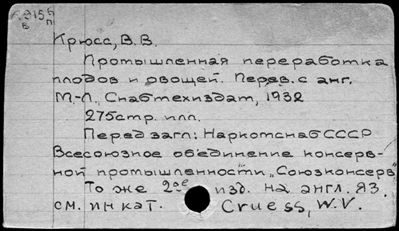 Крюсс, В.В.
Промышленная переработка
плодов и овощей. Перев. с анг.
М-Л., Снабтехиздат, 1932
275стр. илл.
Перед загл: Наркотснаб СССР
Всесоюзное об'единение консерв-
ной промышленности „Союзконсерв"
То же 2ое изд. на англ. яз.
см. ин кат. Cruess, W.V.